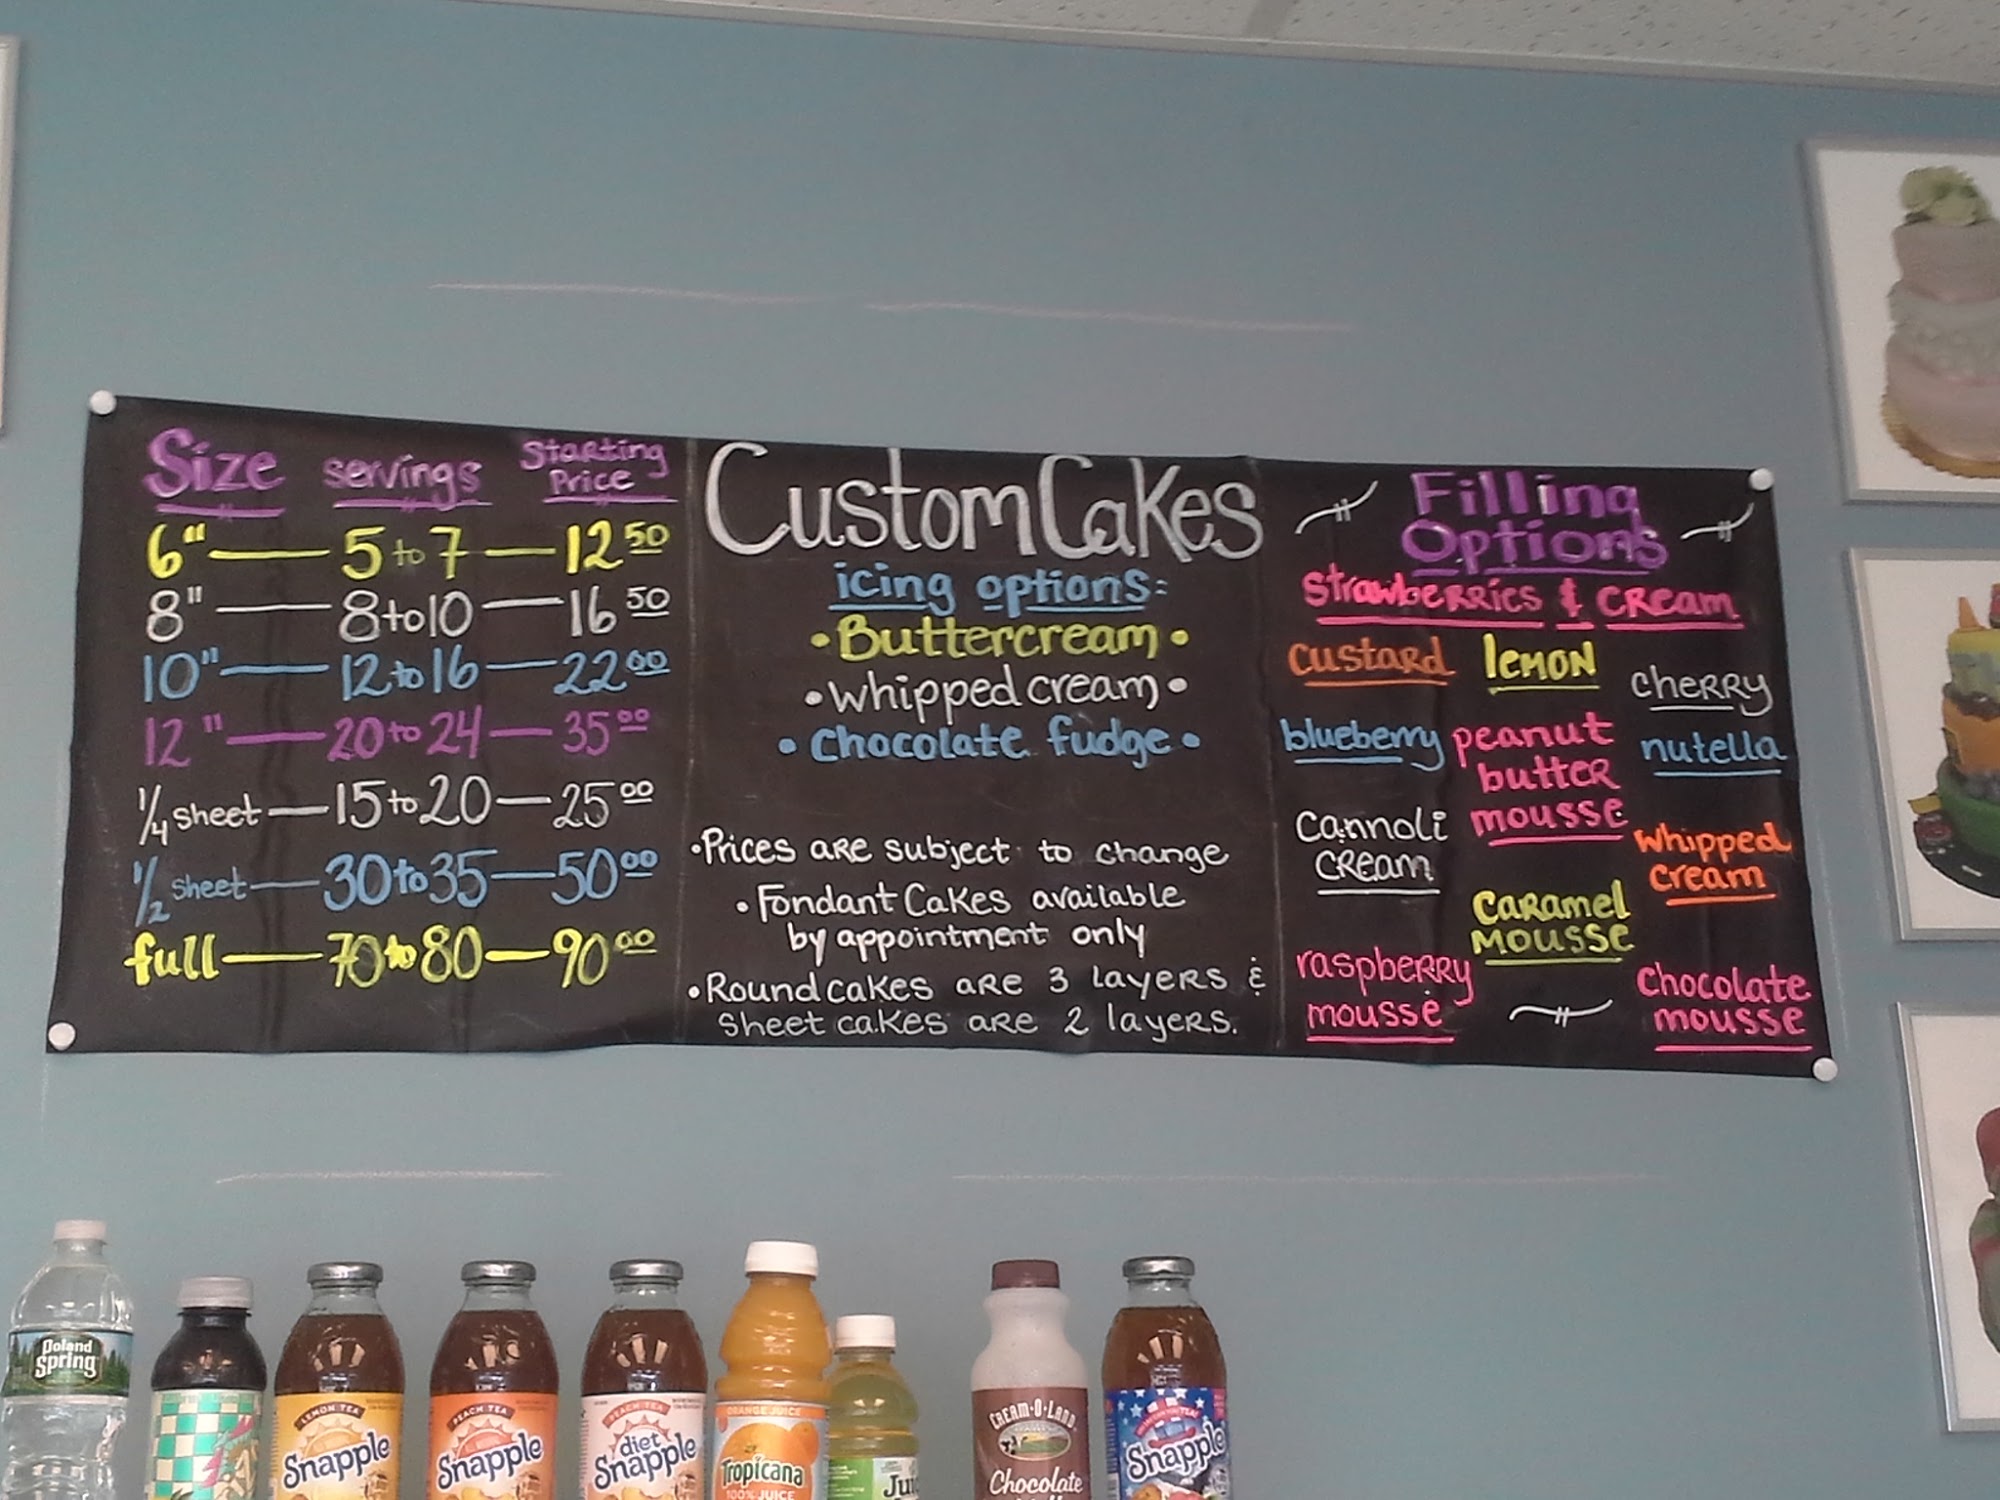 Size servings Starting Price
6" 5 to 7 12 50
8" 8 to 10 16 50
10" 12 to 16 22 00
12" 20 to 24 35 00
1/4 sheet 15 to 20 25 00
1/2 sheet 30 to 35 50 00
full 70 to 80 90 00
Custom Cakes
icing options:
• Buttercream •
• whipped cream •
• Chocolate fudge •
• Prices are subject to change
• Fondant Cakes available
by appointment only
• Round cakes are 3 layers &
Sheet cakes are 2 layers.
Filling
Options
Strawberries & cream
custard lemon cherry
blueberry
peanut
butter
mousse
nutella
Cannoli
cream
whipped
cream
Caramel
mousse
raspberry
mousse
Chocolate
mousse
Poland
Spring
LEMON TEA
Snapple
PEACH TEA
Snapple
PEACH TEA
diet
Snapple
ORANGE JUICE
Tropicana
100% JUICE
CREAM-O-LAND
Chocolate
Snapple